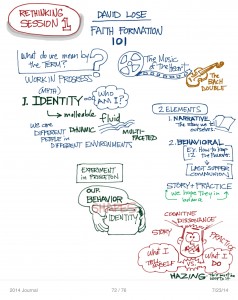 RETHINKING
SESSION 1
DAVID LOSE
FAITH FORMATION
101
What do we mean by
the TERM?
WORK IN PROGRESS
The Music
of The Heart
The BACH
DOUBLE
(MYTH)
1. IDENTITY
WHO
AM I?
malleable
fluid
WE ARE
DIFFERENT DYNAMIC MULTI-
FACETED
PEOPLE IN
DIFFERENT ENVIRONMENTS
2 ELEMENTS
1. NARRATIVE
The story we tell
ourselves
2. BEHAVIORAL
LAST SUPPER
COMMUNION
STORY + PRACTICE
We hope they're in
balance
EXPERIMENT
IN PRINCETON
OUR
BEHAVIOR
SHAPES
IDENTITY
COGNITIVE
DISSONANCE
STORY
PRACTICE
What I
TELL
MYSELF
VS
What I
DO
HAZING
2014 Journal
72 / 76
7/23/14